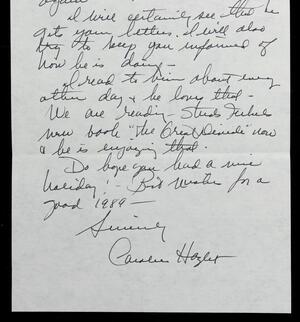 again
I will certainly see that he
gets your letters. I will also
try to keep you informed of
how he is doing –
I read to him about every
other day & he loves that –
We are reading – Studs Terkel's
new book "The Great Divide" now
& he is enjoying that.
Do hope you had a nice
holiday! – Best wishes for a
good 1989 –
Sincerely